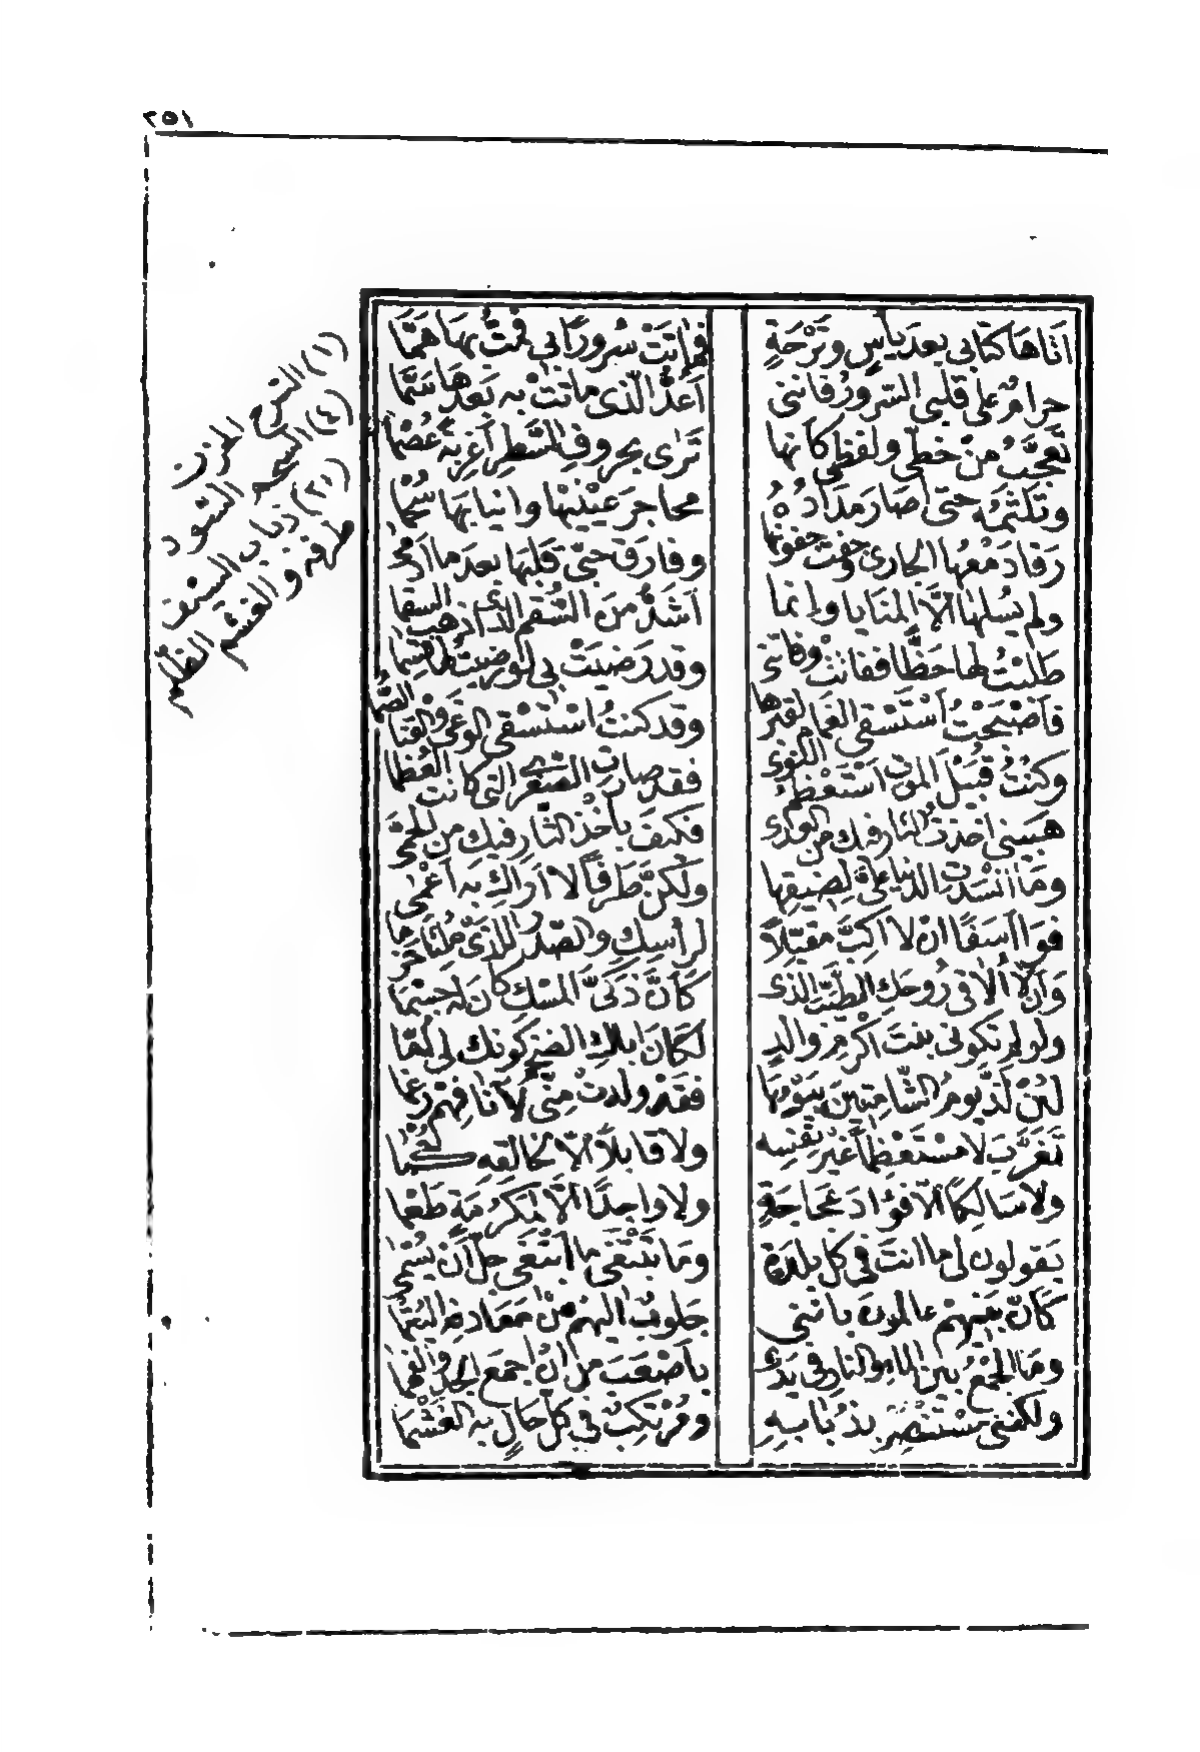 ٢٥١
أتاها كتابي بعد يأس وترحة فماتت سرورا بي فمت بها همّا
حرام على قلبي السرور فإنني أعدّ الذي ماتت به بعدها سمّا
تعجّب من خطي ولفظي كأنها ترى بحروف السطر أغربة عصما
وتلثمه حتى أصار مداده محاجر عينيها وأنيابها سحما
رقا دمعها الجارى وجفت جفونها وفارق حبّى قلبها بعد ما أدمى
ولم يسلها إلّا المنايا وإنما أشدّ من السقم الذي أذهب السقما
طلبت لها حظّا ففاتت وفاتنى وقد رضيت بي لو رضيت لها قسما
فأصبحت أستسقى الغمام لقبرها وقد كنت أستسقى الوغى والقنا الصمّا
وكنت قبيل الموت أستعظم النوى فقد صارت الصغرى التى كانت العظمى
هبيني أخذت الثار فيك من العدى فكيف بأخذ الثار فيك من الحمّى
وما انسدت الدنيا علىّ لضيقها ولكنّ طرفا لا أراك به أعمى
فوا أسفا أن لا أكبّ مقبّلا لرأسك والصدر اللذى ملئا حزما
وأن لا ألاقى روحك الطيّب الذى كأنّ ذكىّ المسك كان له جسما
ولو لم تكوني بنت أكرم والد لكان أباك الضخم كونك لى أمّا
لئن لذّ يوم الشامتين بيومها فقد ولدت منّى لآنافهم رغما
تغرّب لا مستعظما غير نفسه ولا قابلا إلّا لخالقه حكما
ولا سالكا إلّا فؤاد عجاجة ولا واجدا إلّا لمكرمة طعما
يقولون لى ما أنت في كل بلدة وما تبتغى ما أبتغى جلّ أن يسمى
كأنّ بنيهم عالمون بأننى جلوب إليهم من معادنه اليتما
وما الجمع بين الماء والنار في يدى بأصعب من أن أجمع الجدّ والفهما
ولكنني مستنصر بذبابه ومرتكب في كل حال به الغشما
(١) الترح الحزن
(٤) السحم السود
(٣٠) ذباب السيف
طرفه والغشم الظلم